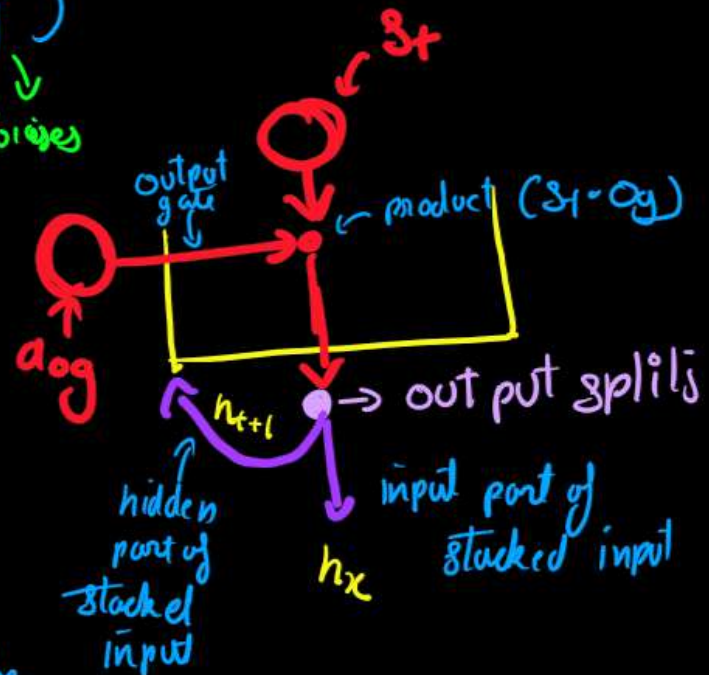 )
biases
St
output
gate
product (St - Og)
aog
ht+1
→ out put splits
hidden
part of
stacked
input
input part of
stacked input
hx